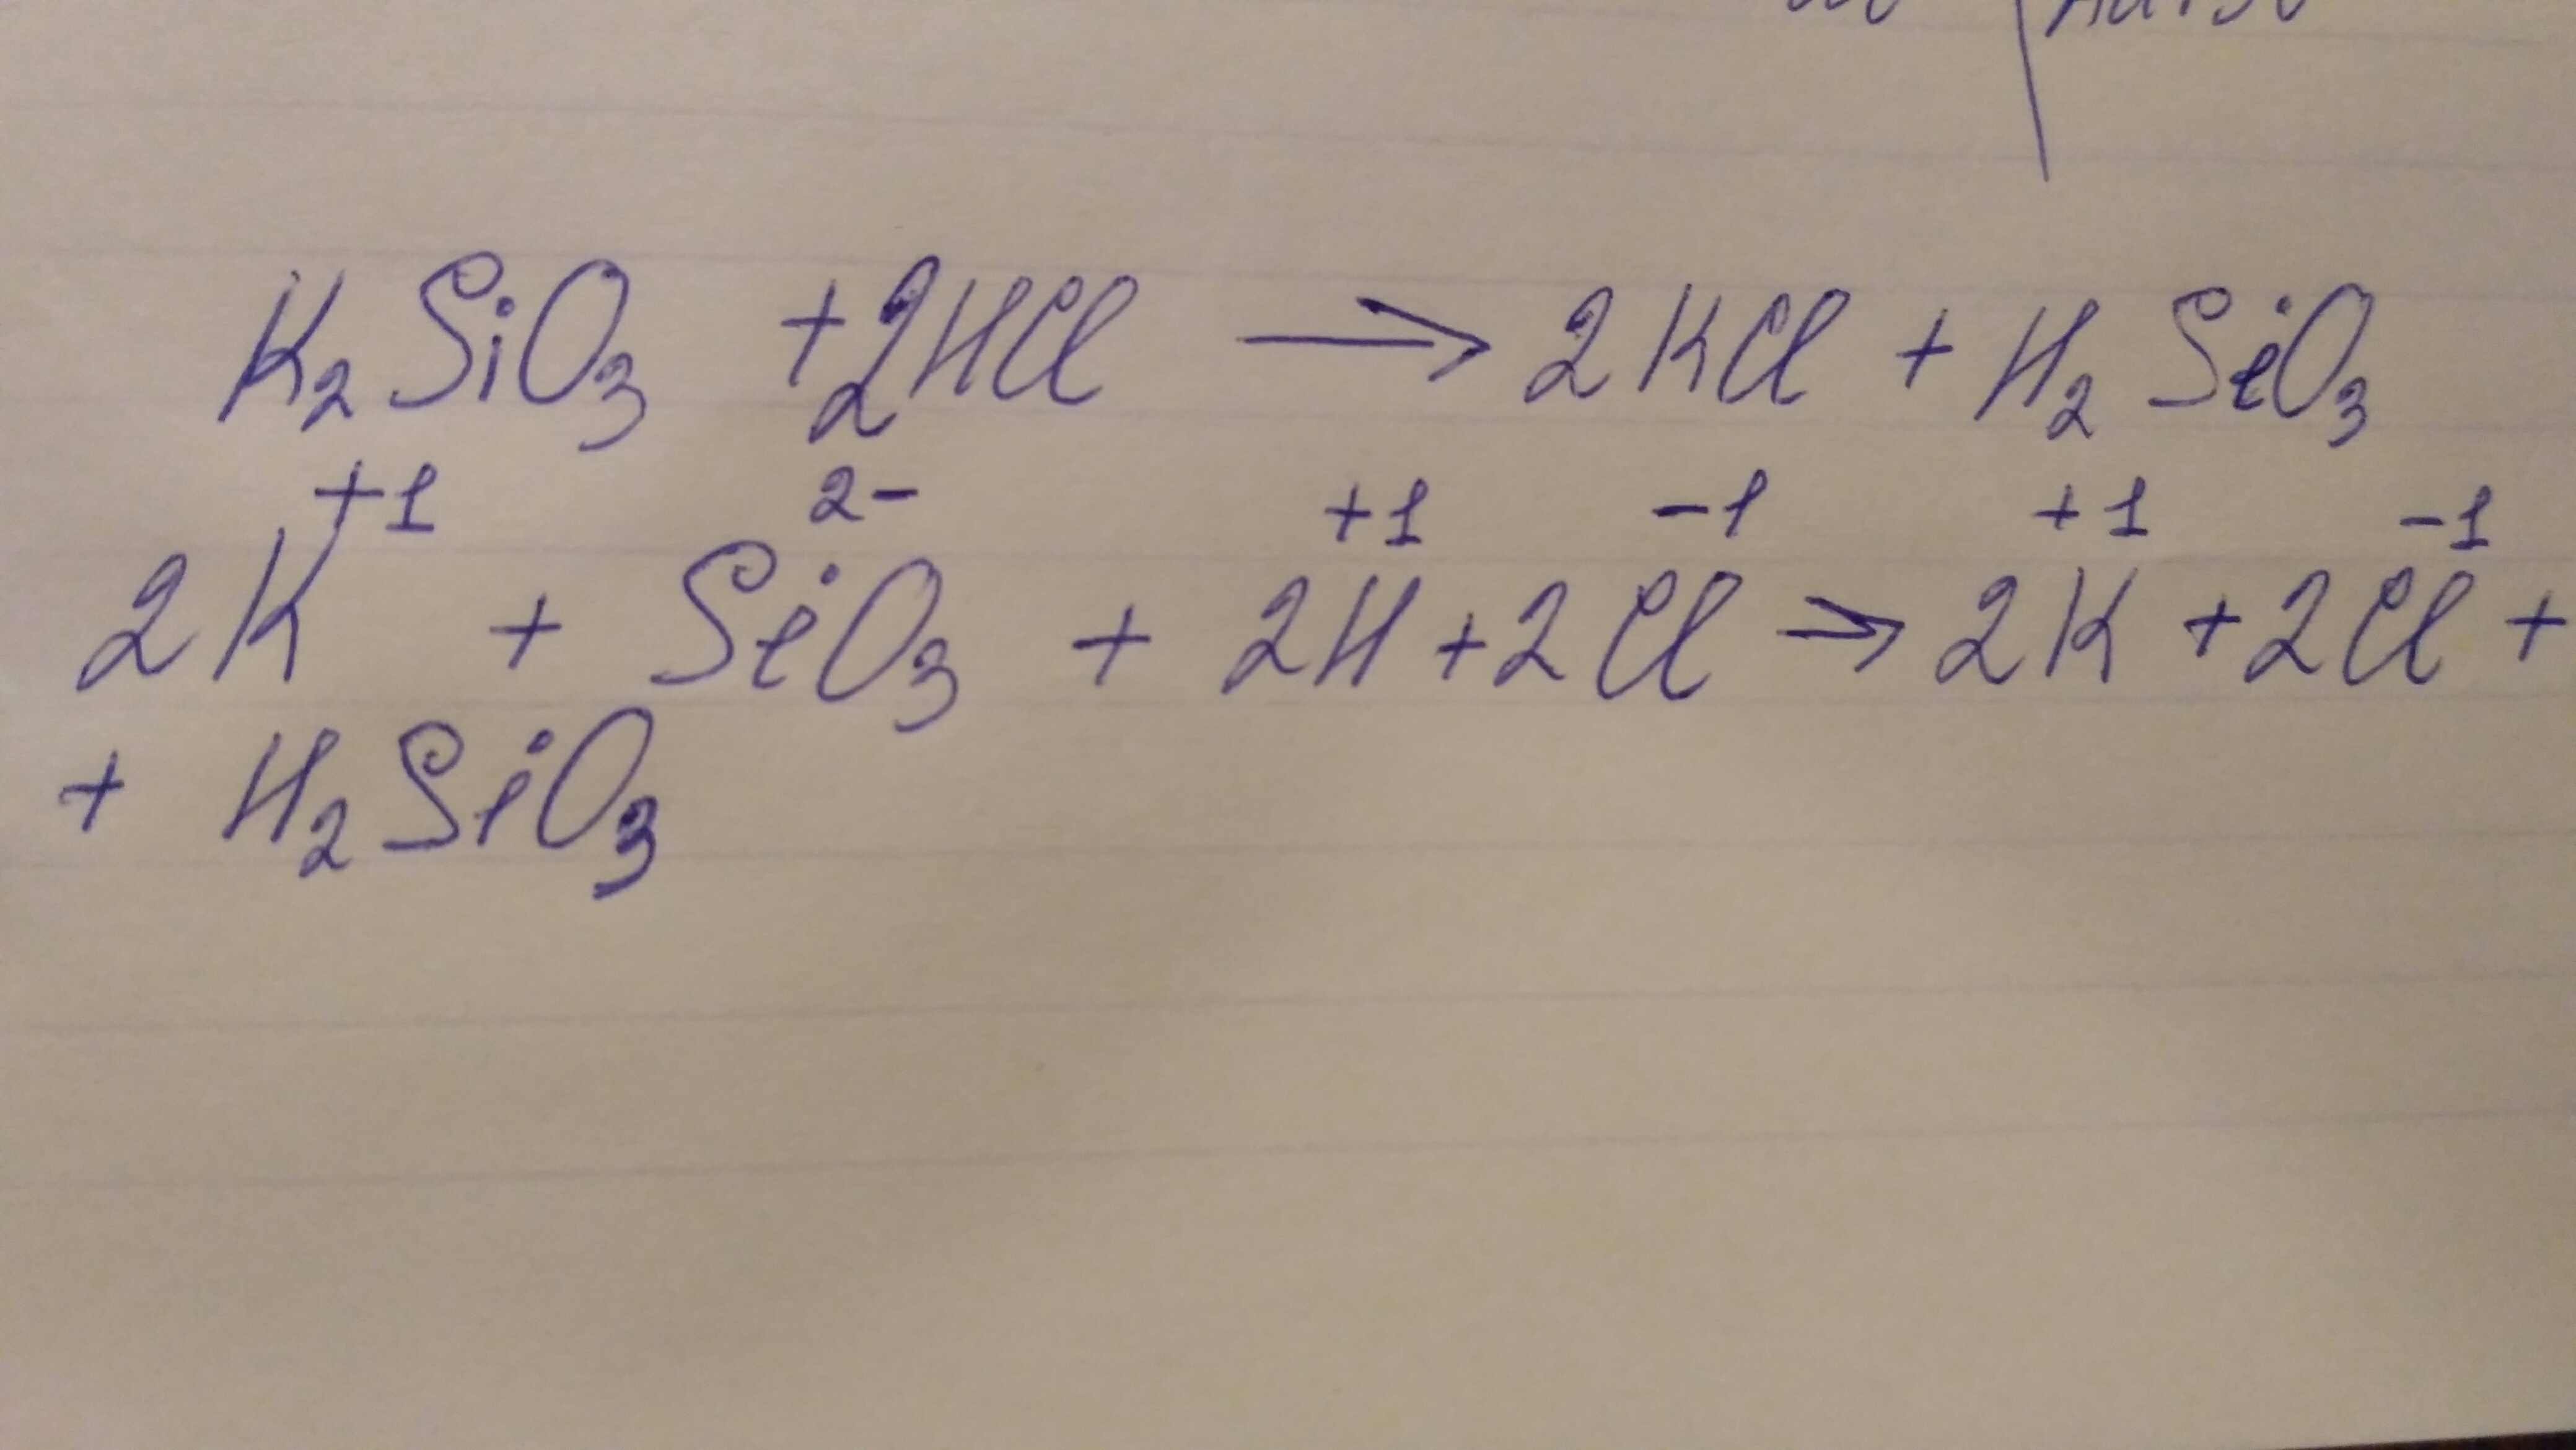 K₂SiO₃ +2HCl → 2KCl + H₂SiO₃
2K⁺¹ + SiO₃²⁻ + 2H⁺¹ +2Cl⁻¹ → 2K⁺¹ +2Cl⁻¹ +
+ H₂SiO₃